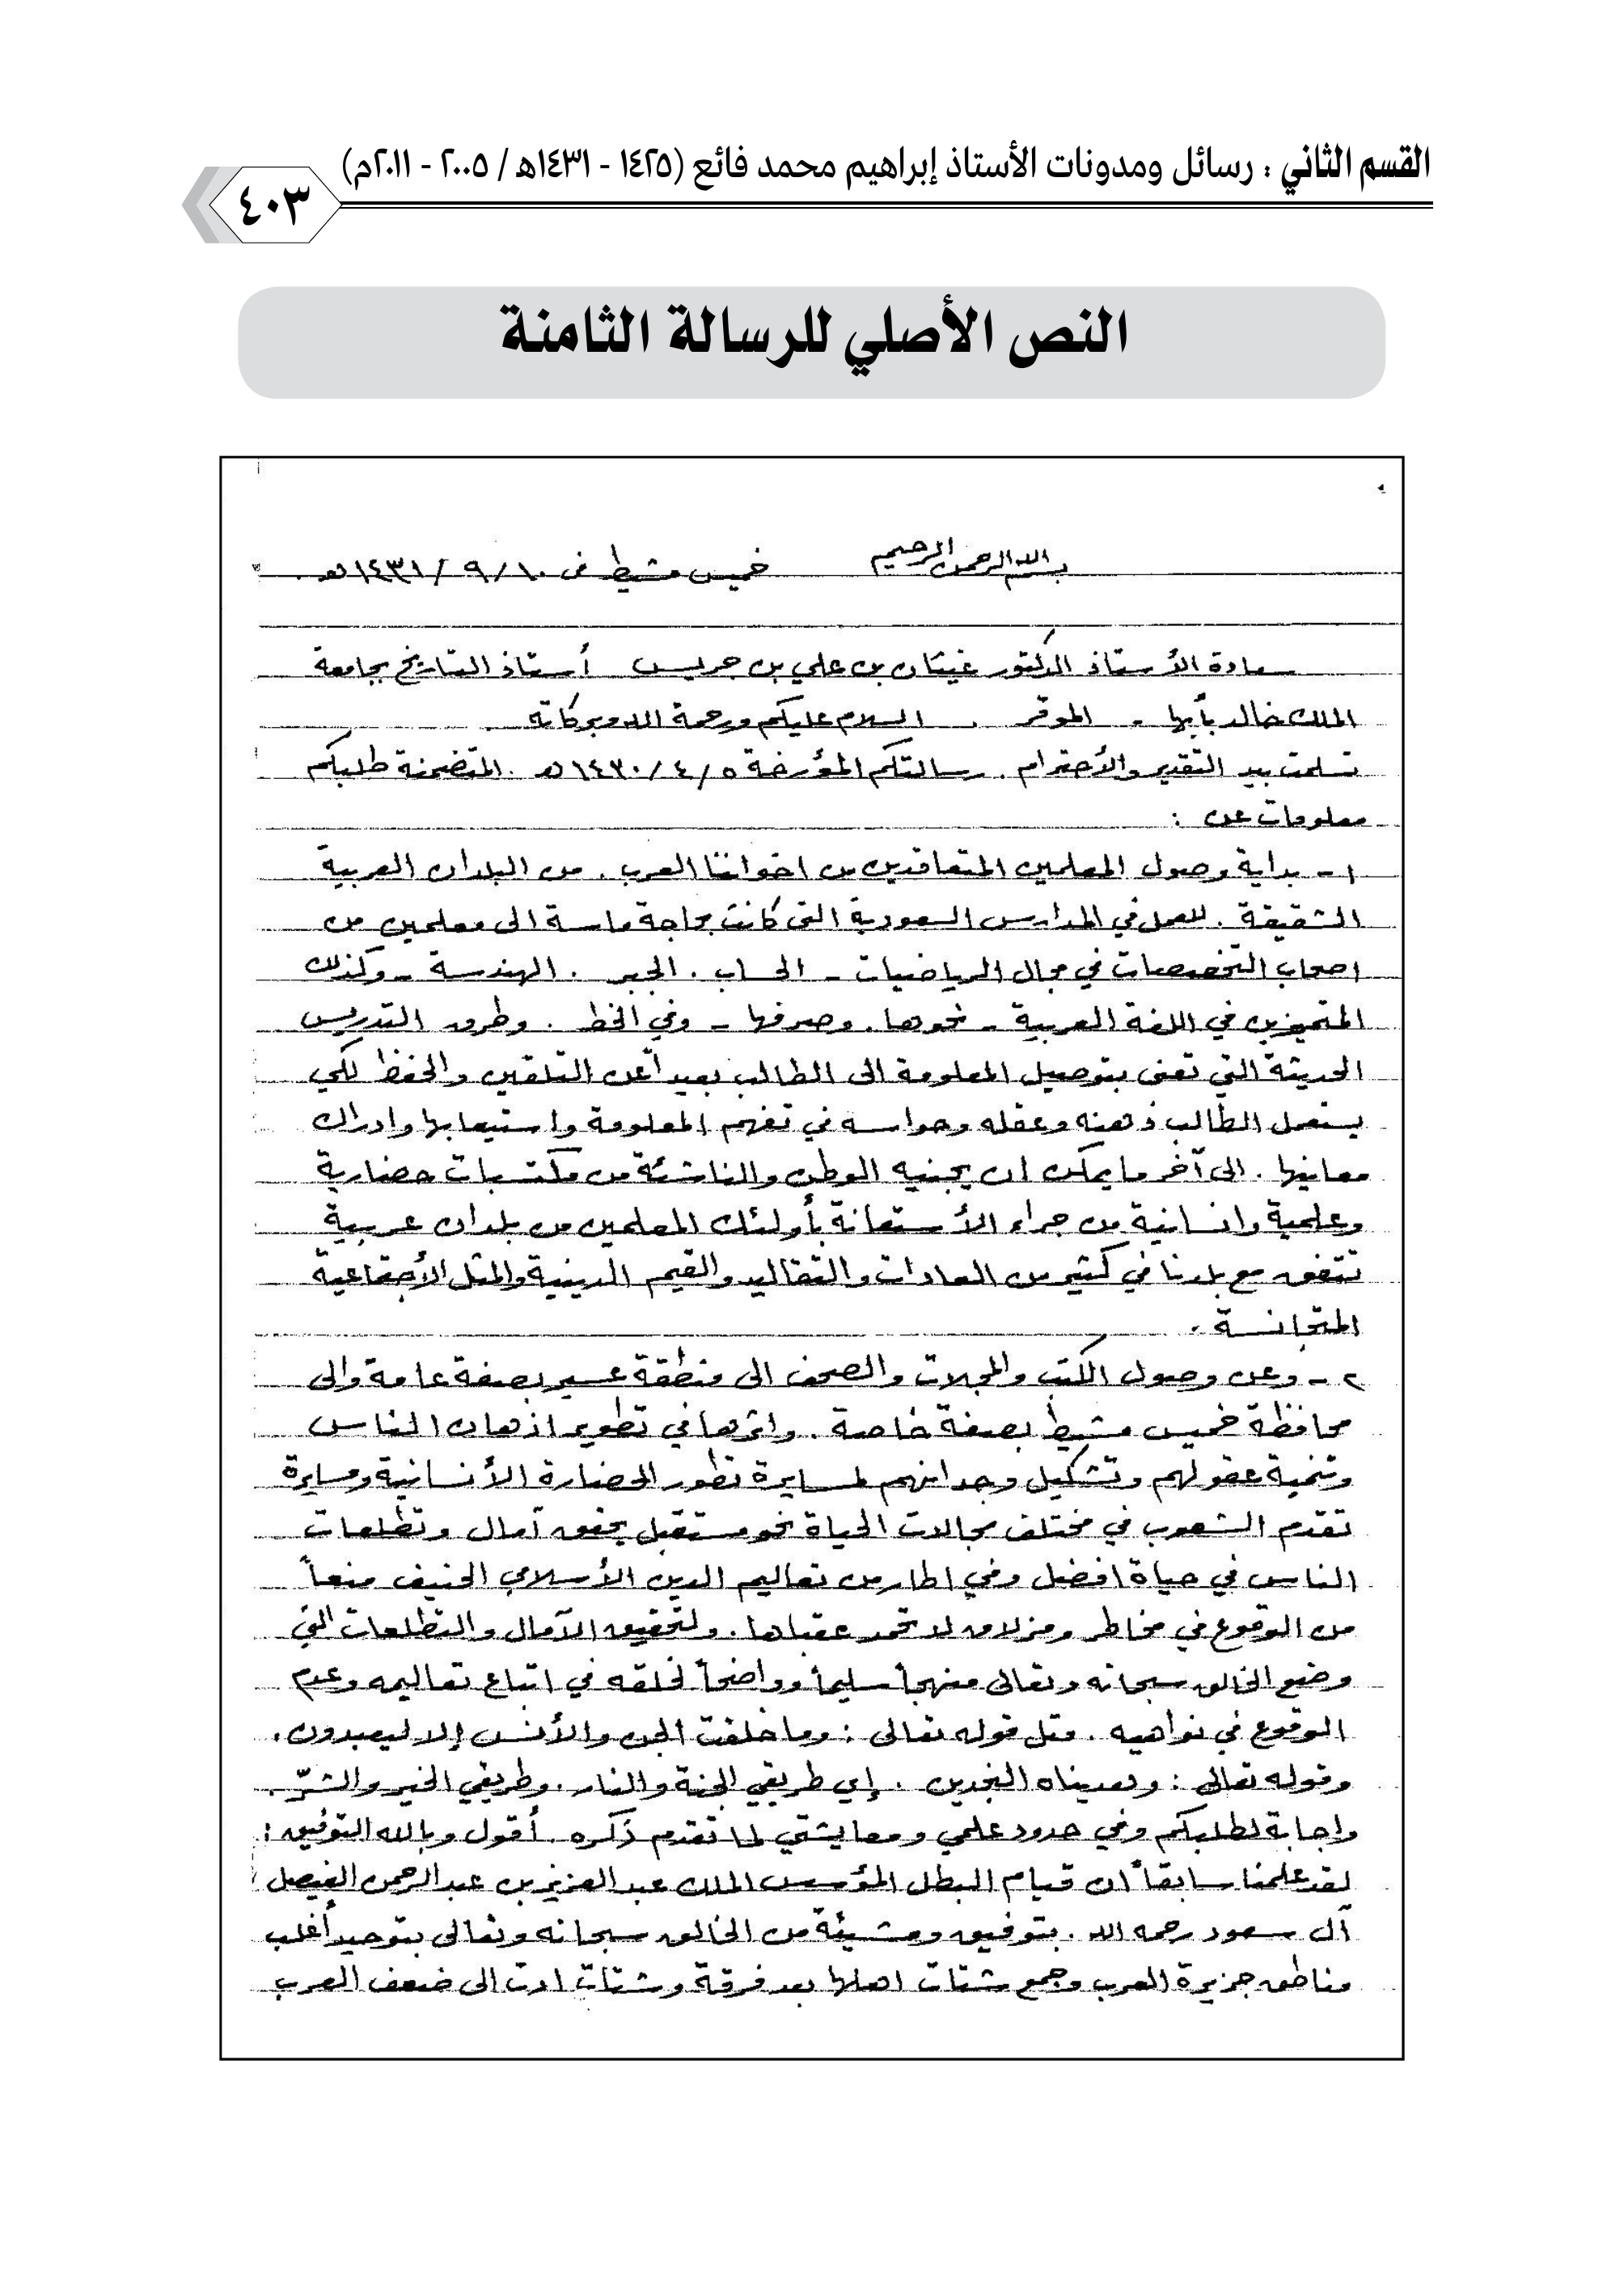 القسم الثاني : رسائل ومدونات الأستاذ إبراهيم محمد فائع (١٤٢٥ - ١٤٣١هـ / ٢٠٠٥ - ٢٠١١م)
٤٠٣
النص الأصلي للرسالة الثامنة
بسم الله الرحمن الرحيم خميس مشيط في ١٠/ ٩/ ١٤٣١هـ .
سعادة الأستاذ الدكتور غيثان بن علي بن جريس أستاذ التاريخ بجامعة
الملك خالد بأبها - الموقر . السلام عليكم ورحمة الله وبركاته .
تسلمت بيد التقدير والأحترام . رسالتكم المؤرخة ٥/ ٤/ ١٤٣٠هـ . المتضمنة طلبكم
معلومات عن :
١ - بداية وصول المعلمين المتعاقدين من اخواننا العرب . من البلدان العربية
الشقيقة . للعمل في المدارس السعودية التي كانت بحاجة ماسة الى معلمين من
اصحاب التخصصات في مجال الرياضيات - الحساب . الجبر . الهندسة - وكذلك
المتميزين في اللغة العربية - نحوها . وصرفها - وفي الخط . وطرق التدريس
الحديثة التي تعنى بتوصيل المعلومة الى الطالب بعيداً عن التلقين والحفظ لكي
يستعمل الطالب ذهنه وعقله وحواسه في تفهم المعلومة واستيعابها وادراك
معانيها . الى آخر ما يمكن ان يجنيه الوطن والناشئة من مكتسبات حضارية
وعلمية وانسانية من جراء الأستعانة بأولئك المعلمين من بلدان عربية
تتفق مع بلدنا في كثير من العادات والتقاليد والقيم الدينية والمثل الأجتماعية
المتجانسة .
٢ - وعن وصول الكتب والمجلات والصحف الى منطقة عسير بصفة عامة والى
محافظة خميس مشيط بصفة خاصة . واثرها في تطوير اذهان الناس
وتنمية عقولهم وتشكيل وجدانهم لمسايرة تطور الحضارة الأنسانية ومسايرة
تقدم الشعوب في مختلف مجالات الحياة نحو مستقبل يحقق آمال وتطلعات
الناس في حياة افضل وفي اطار من تعاليم الدين الأسلامي الحنيف منعاً
من الوقوع في مخاطر ومزلاق لا تحمد عقباها . ولتحقيق الآمال والتطلعات التي
وضع الخالق سبحانه وتعالى منهجاً سليماً وواضحاً لخلقه في اتباع تعاليمه وعدم
الوقوع في نواهيه . مثل قوله تعالى : وما خلقت الجن والأنس إلا ليعبدون .
وقوله تعالى : وهديناه النجدين . إي طريقي الجنة والنار . وطريقي الخير والشرّ .
واجابة لطلبكم وفي حدود علمي ومعايشتي لما تقدم ذكره . أقول وبالله التوفيق :
لقد علمنا سابقاً ان قيام البطل المؤسس الملك عبد العزيز بن عبد الرحمن الفيصل
آل سعود رحمه الله . بتوفيق ومشيئة من الخالق سبحانه وتعالى بتوحيد أغلب
مناطق جزيرة العرب وجمع شتات اهلها بعد فرقة وشتات ادت الى ضعف العرب